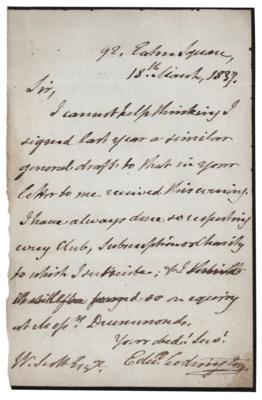 92, Eaton Square,
18th March, 1837.
Sir,
I cannot help thinking I
signed last year a similar
general draft to that in your
letter to me received this evening.
I have always done so respecting
every Club, Subscription or Charity
to which I subscribe; & I
so on enquiry
at Messrs. Drummonds.
Your obedt. Servt.
W. Scott Esqr. Edwd. Codrington